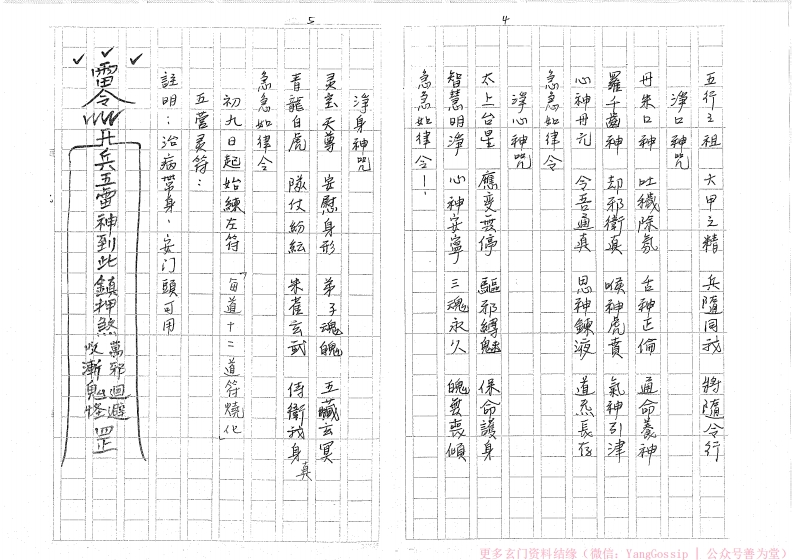 4
五行之祖 六甲之精 兵隨同我 將隨令行
淨口神咒
丹朱口神 吐穢除氛 舌神正倫 通命養神
羅千齒神 却邪衛真 喉神虎賁 氣神引津
心神丹元 令吾通真 思神鍊液 道炁長存
急急如律令
淨心神咒
太上台星 應變无停 驅邪縛魅 保命護身
智慧明淨 心神安寧 三魂永久 魄无喪傾
急急如律令!
5
淨身神咒
灵宝天尊 安慰身形 弟子魂魄 五臟玄冥
青龍白虎 隊仗紛紜 朱雀玄武 侍衛我身
真
急急如律令
初九日起始練左符「每道十二道符燒化」
五雷灵符:
註明:治病帶身,安门頭可用
雷令
升兵五雷神到此鎮押煞
萬邪迴避
收漸鬼怪
罡
更多玄门资料结缘(微信:YangGossip | 公众号善为堂)